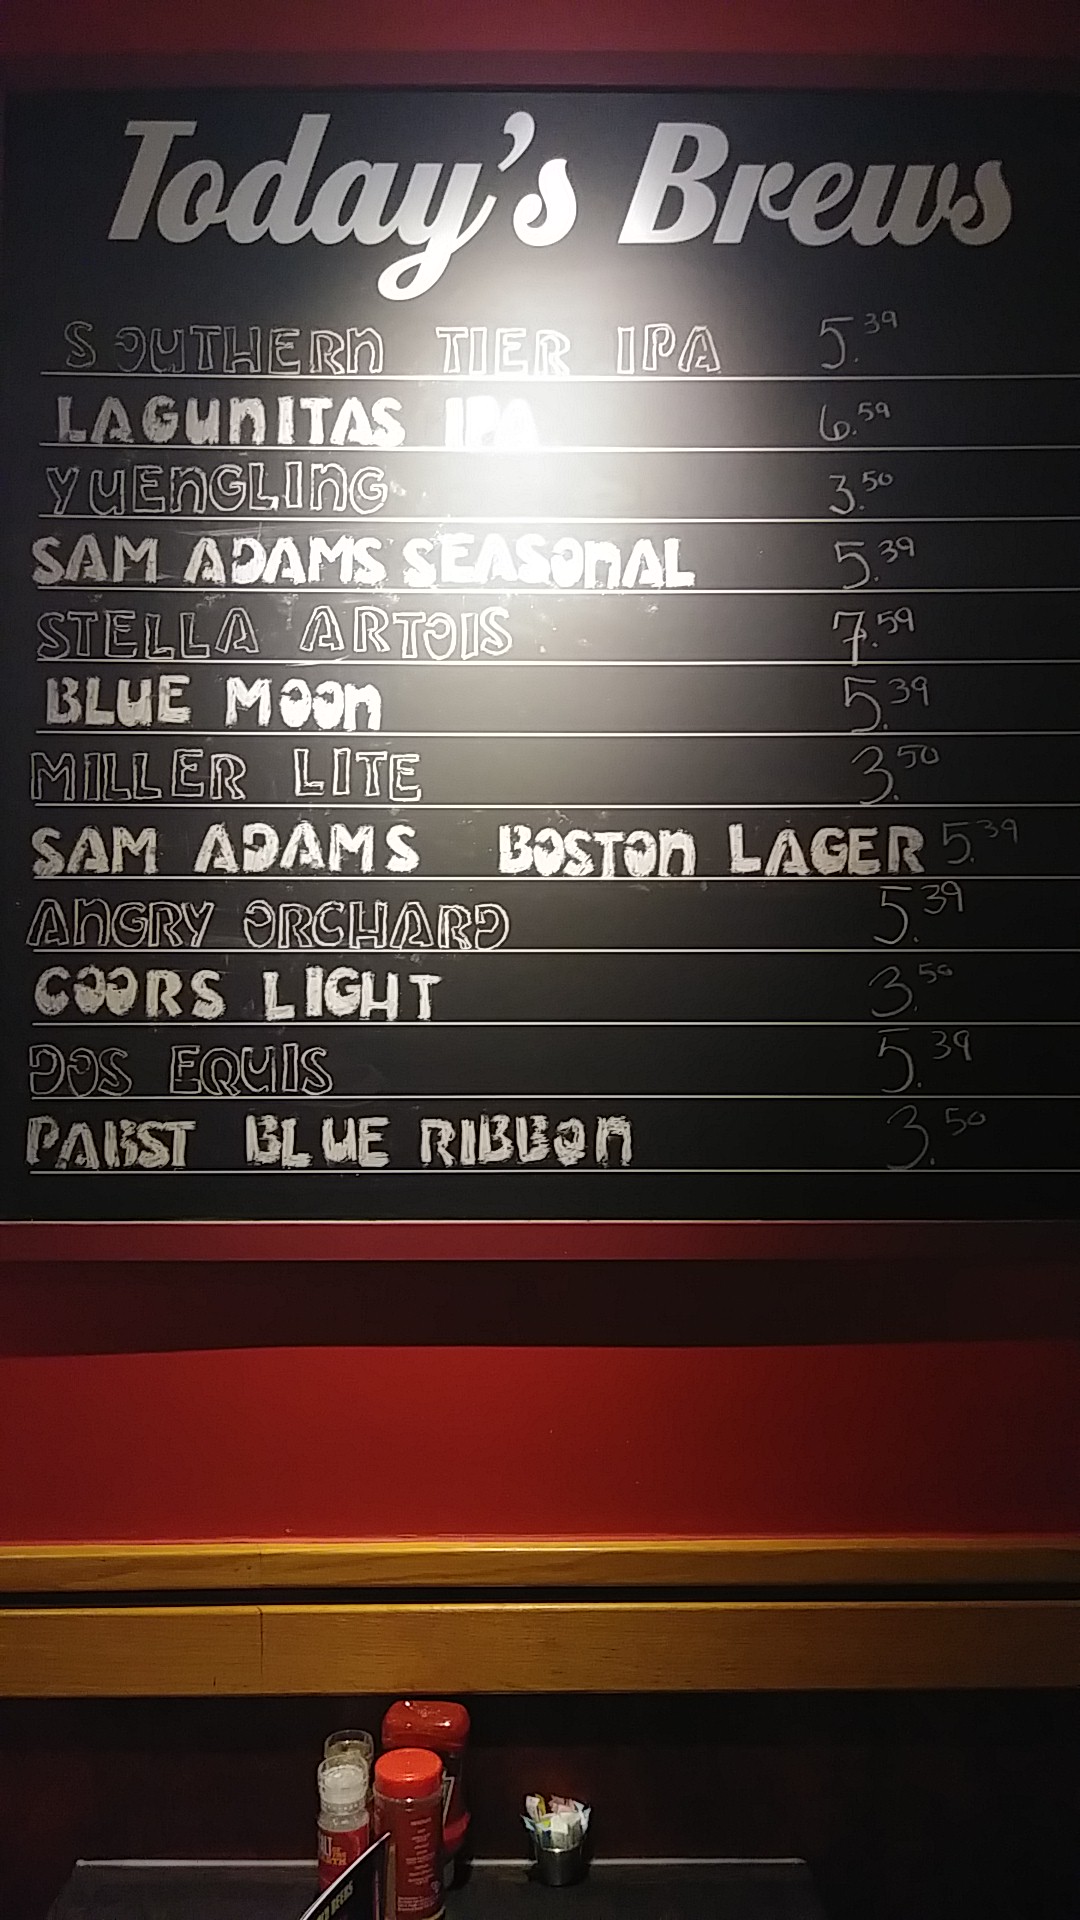 Today's Brews
SOUTHERN TIER IPA 5.39
LAGUNITAS IPA 6.59
YUENGLING 3.50
SAM ADAMS SEASONAL 5.39
STELLA ARTOIS 7.59
BLUE MOON 5.39
MILLER LITE 3.50
SAM ADAMS BOSTON LAGER 5.39
ANGRY ORCHARD 5.39
COORS LIGHT 3.50
DOS EQUIS 5.39
PABST BLUE RIBBON 3.50